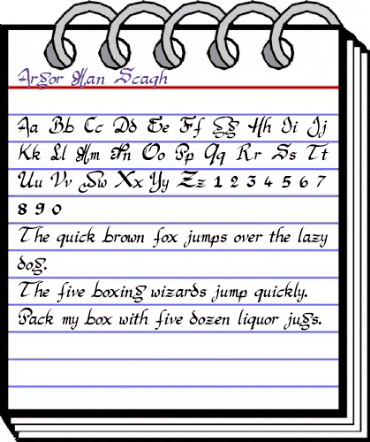 Argor Man Scaqh
Aa Bb Cc Dd Ee Ff Gg Hh Ii Jj
Kk Ll Mm Nn Oo Pp Qq Rr Ss Tt
Uu Vv Ww Xx Yy Zz 1 2 3 4 5 6 7
8 9 0
The quick brown fox jumps over the lazy
dog.
The five boxing wizards jump quickly.
Pack my box with five dozen liquor jugs.